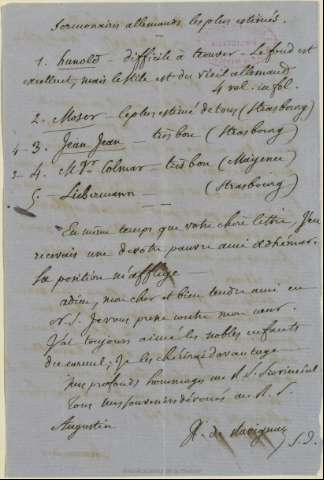 Sermonnaires allemands les plus estimés.
1. hunold — difficile à trouver — Le fond est
excellent, mais le stile est du vieil allemand
4 vol. in fol.
2. Moser — le plus estimé de tous (Strasbourg)
3. Jean Jean — très bon (Strasbourg)
4. Mgr Colmar — très bon (Mayence)
5. Liebermann — (Strasbourg)
En même temps que votre chère lettre, j'en
recevais une de votre pauvre ami
Sa position m'afflige
adieu, mon cher et bien tendre ami en
N.S. Je vous presse contre mon cœur.
J'ai toujours aimé les nobles enfants
du je les chérirai davantage
Mes profonds hommages au R.P. Provincial
Tous mes souvenirs dévoués au R.P.
Augustin
de Ravignan
S.J.